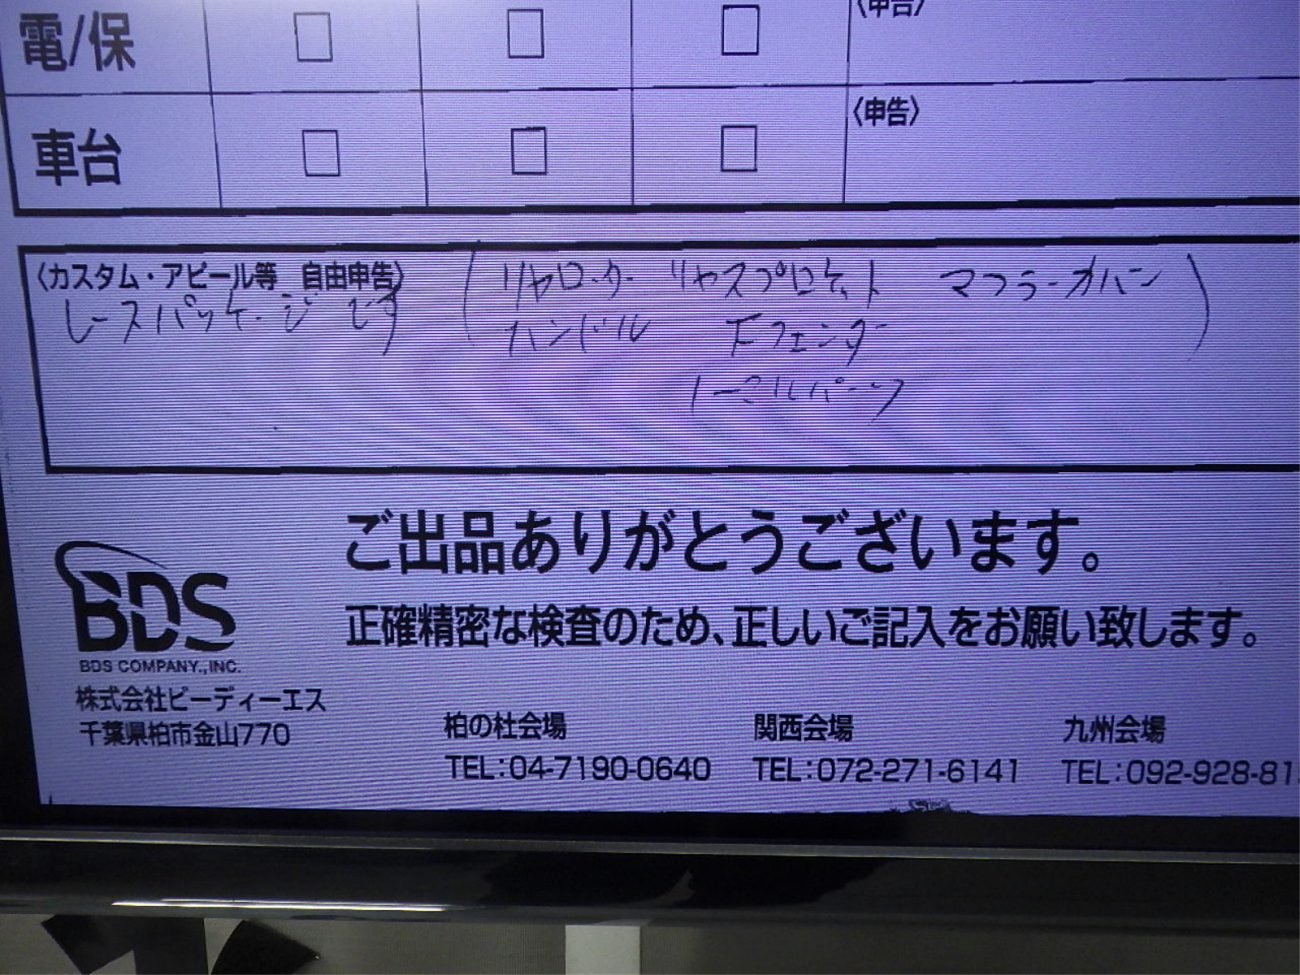 電/保 □ □ □ 〈申告〉
車台 □ □ □ 〈申告〉
〈カスタム・アピール等 自由申告〉
レースパッケージです
リヤローター リヤスプロケット マフラーカバー
ハンドル Fフェンダー
ご出品ありがとうございます。
正確精密な検査のため、正しいご記入をお願い致します。
BDS
BDS COMPANY.,INC.
株式会社ビーディーエス
千葉県柏市金山770
柏の杜会場 関西会場 九州会場
TEL:04-7190-0640 TEL:072-271-6141 TEL:092-928-81